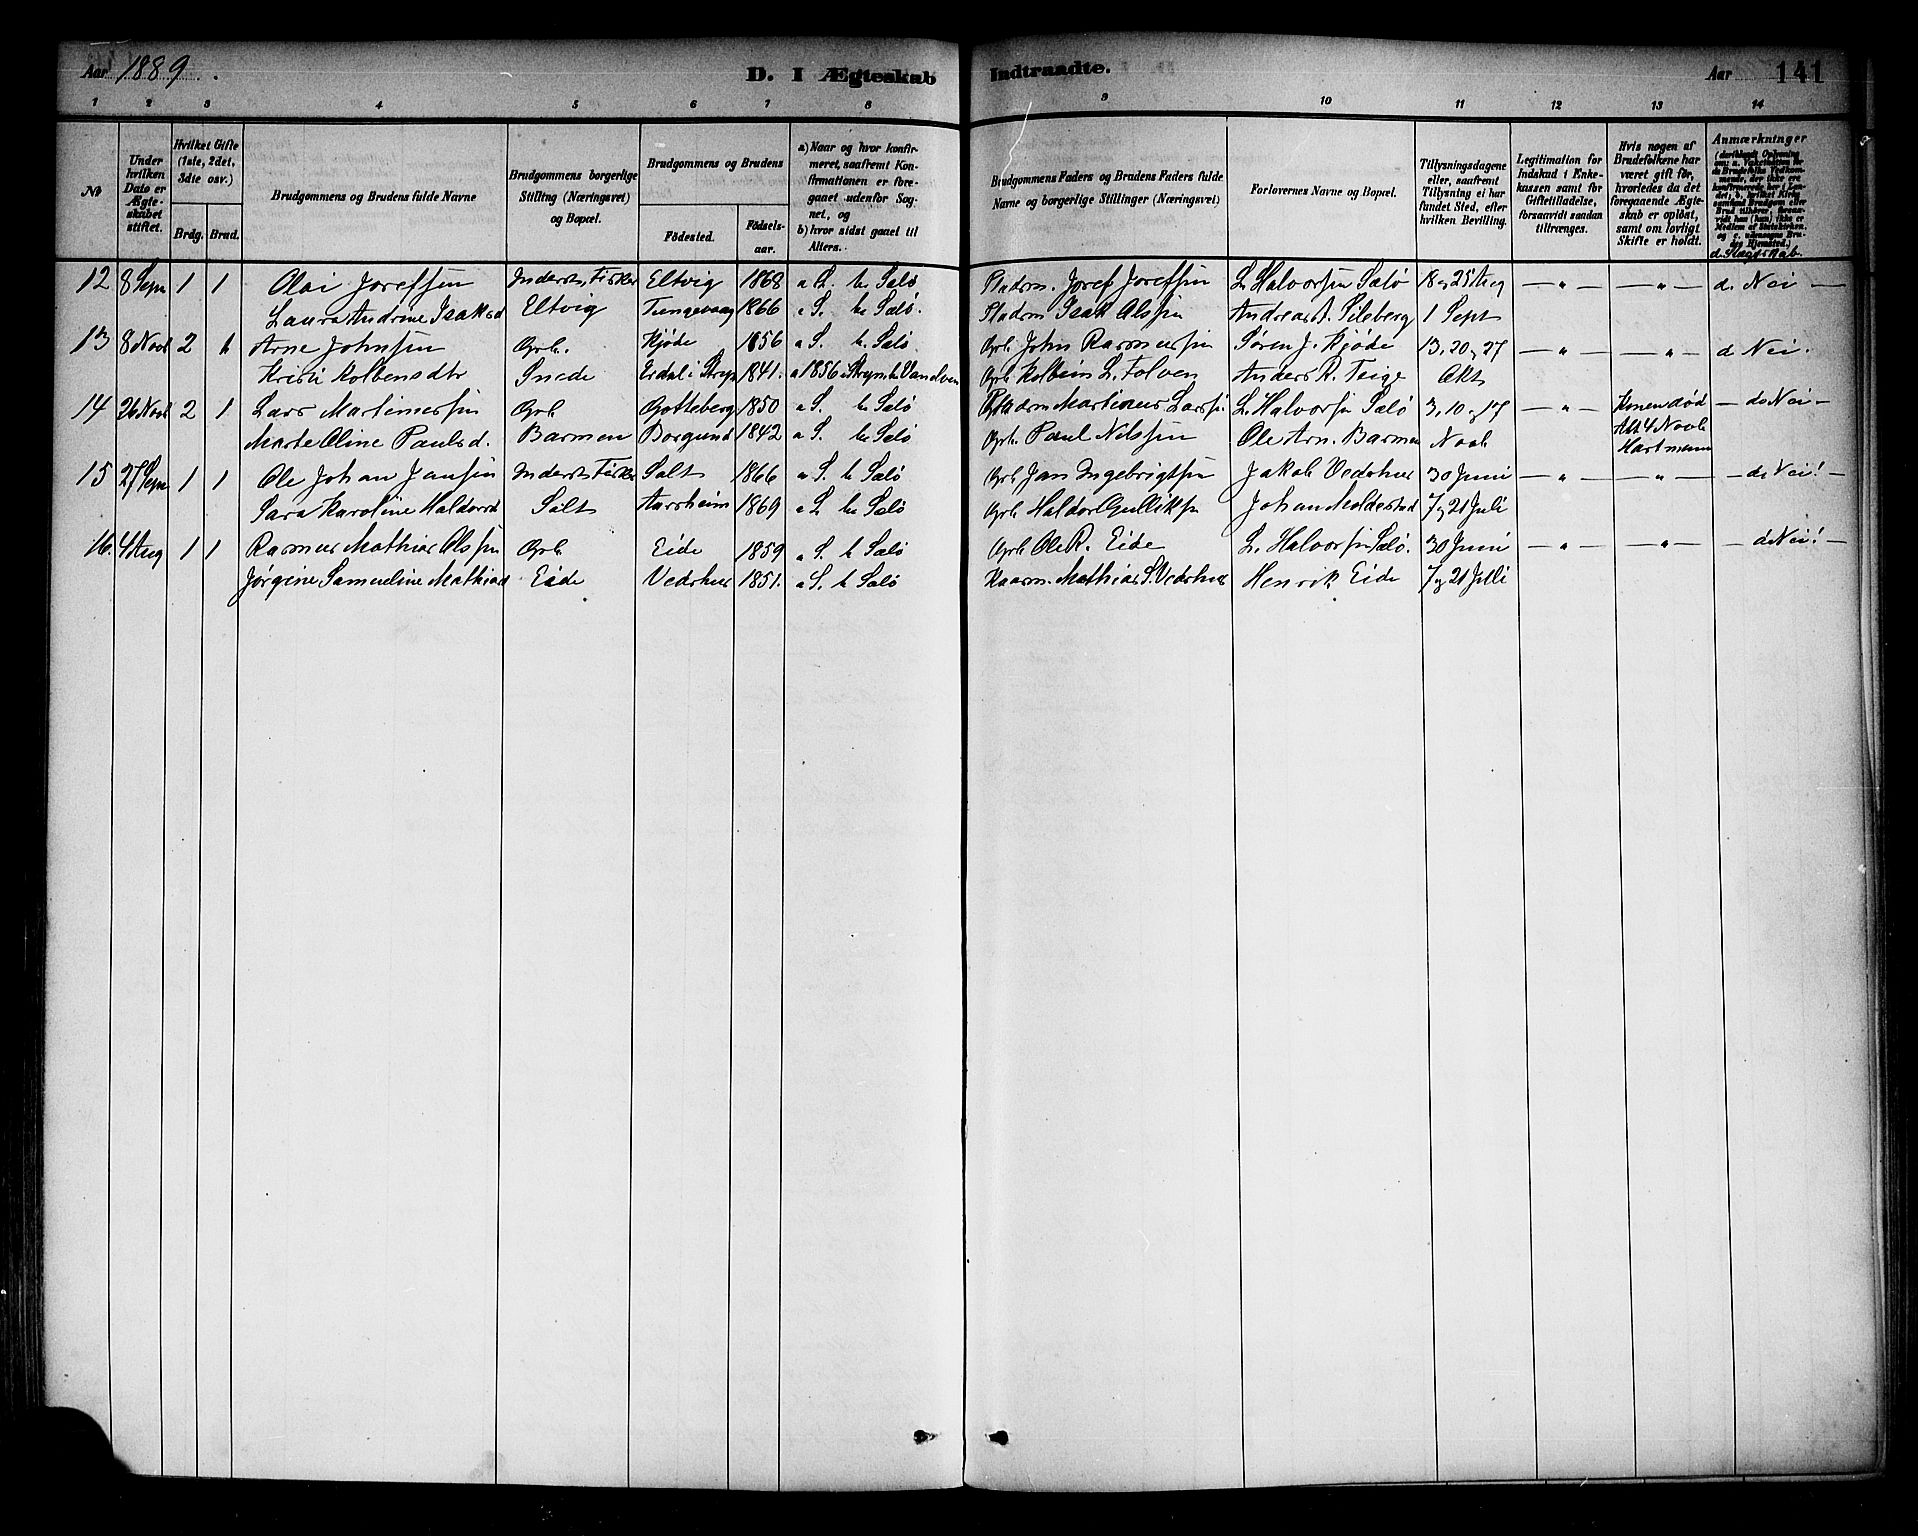 Aar 1889.
D. I Ægteskab Indtraadte.
Aar 141
1 2 3 4 5 6 7 8 9 10 11 12 13 14
№
Under hvilken Dato er Ægteskabet stiftet.
Hvilket Gifte (1ste, 2det, 3die osv.)
Brdg. Brud.
Brudgommens og Brudens fulde Navne
Brudgommens borgerlige Stilling (Næringsvei) og Bopæl.
Brudgommens og Brudens
Födested.
Födselsaar.
a) Naar og hvor konfirmeret, saafremt Konfirmationen er foregaaet udenfor Sognet, og
b) hvor sidst gaaet til Alters.
Brudgommens Faders og Brudens Faders fulde Navne og borgerlige Stillinger (Næringsvei)
Forlovernes Navne og Bopæl.
Tillysningsdagene eller, saafremt Tillysning ei har fundet Sted, efter hvilken Bevilling.
Legitimation for Indskud i Enkekassen samt for Giftetilladelse, forsaavidt saadan tiltrænges.
Hvis nogen af Brudefolkene har været gift för, hvorledes da det foregaaende Ægteskab er oplöst, samt om lovligt Skifte er holdt.
Anmærkninger
d. Slægtskab
12 8 Sepn 1 1 Olai Josefsen Inderst, Fisker Eltvig 1868 a S. b Selø Pladsm. Josef Josefsen L. Halvorsen Selø 18 og 25 Aug — " — — " — d. Nei —
Laura Andrine Isaksd Eltvig Tungevaag 1866 a S. b Selø. Pladsm Isak Olssen Andreas A. Sileberg 1 Sept
13 8 Novb 2 1 Arne Johnsen Grb. Kjøde 1856 a S. b Selø. Grb John Rasmussen Søren J. Kjøde 13, 20 og 27 — " — — " — d Nei.
Kristi Kolbensdtr Snede Erdal i Stryn 1841. a 1856 i Stryn b Vandven Grb Kolbein L. Folven Anders R. Teige Okt
14 26 Novb 2 1 Lars Martinussen Grb Gotteberg 1850 a S. b Selø Pladsm Martinus Larss L. Halvorsen Selø 3, 10 og 17 — " — Konen død — d Nei —
Marte Oline Paulsd. Barmen Borgund 1842 a S. b Selø Grb Paul Nilssen Ole Arn. Barmen Novb Att 4 Novb
Hartmann
15 27 Sepn 1 1 Ole Johan Jansen Inderst, Fisker Salt 1866 a S. b Selø Grb Jan Ingebrigtsen Jakob Vedshus 30 Juni — " — — " — — d Nei! —
Sara Karoline Haldorsd Salt Aarsheim 1869 a S. b Selø Grb Haldor Gulliks Johan Moldestad 7 og 21 Juli
16. 4 Aug 1 1 Rasmus Mathias Olssen Grb Eide 1859 a S. b Selø Grb Ole R. Eide L. Halvorsen Selø. 30 Juni — " — — " — — d Nei! —
Jørgine Samueline Mathiasd Eide Vedshus 1851. a S. b Selø Kaarm. Mathias S. Vedshus Henrik Eide 7 og 21 Juli